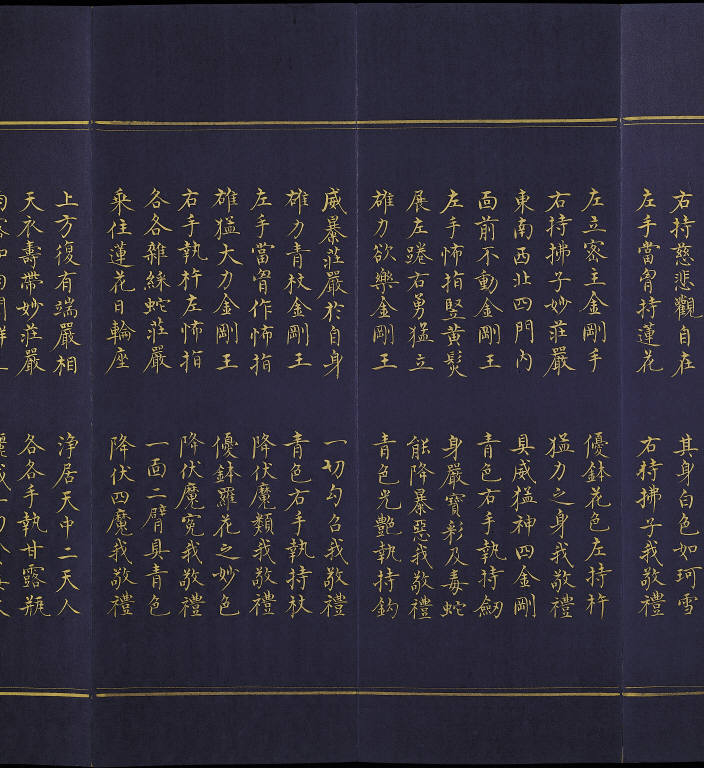 右持慈悲觀自在 其身白色如珂雪
左手當胷持蓮花 右持拂子我敬禮
左立密主金剛手 優鉢花色左持杵
右持拂子妙莊嚴 猛力之身我敬禮
東南西北四門內 具威猛神四金剛
面前不動金剛王 青色右手執持劒
左手怖指竪黃髮 身嚴寶彩及毒蛇
展左踡右勇猛立 能降暴惡我敬禮
雄力欲樂金剛王 青色光艷執持鈎
威暴莊嚴於自身 一切勾召我敬禮
雄力青杖金剛王 青色右手執持杖
左手當胷作怖指 降伏魔類我敬禮
雄猛大力金剛王 優鉢羅花之妙色
右手執杵左怖指 降伏魔寃我敬禮
各各雜綵蛇莊嚴 一面二臂具青色
乘住蓮花日輪座 降伏四魔我敬禮
上方復有端嚴相 淨居天中二天人
天衣壽帶妙莊嚴 各各手執甘露瓶